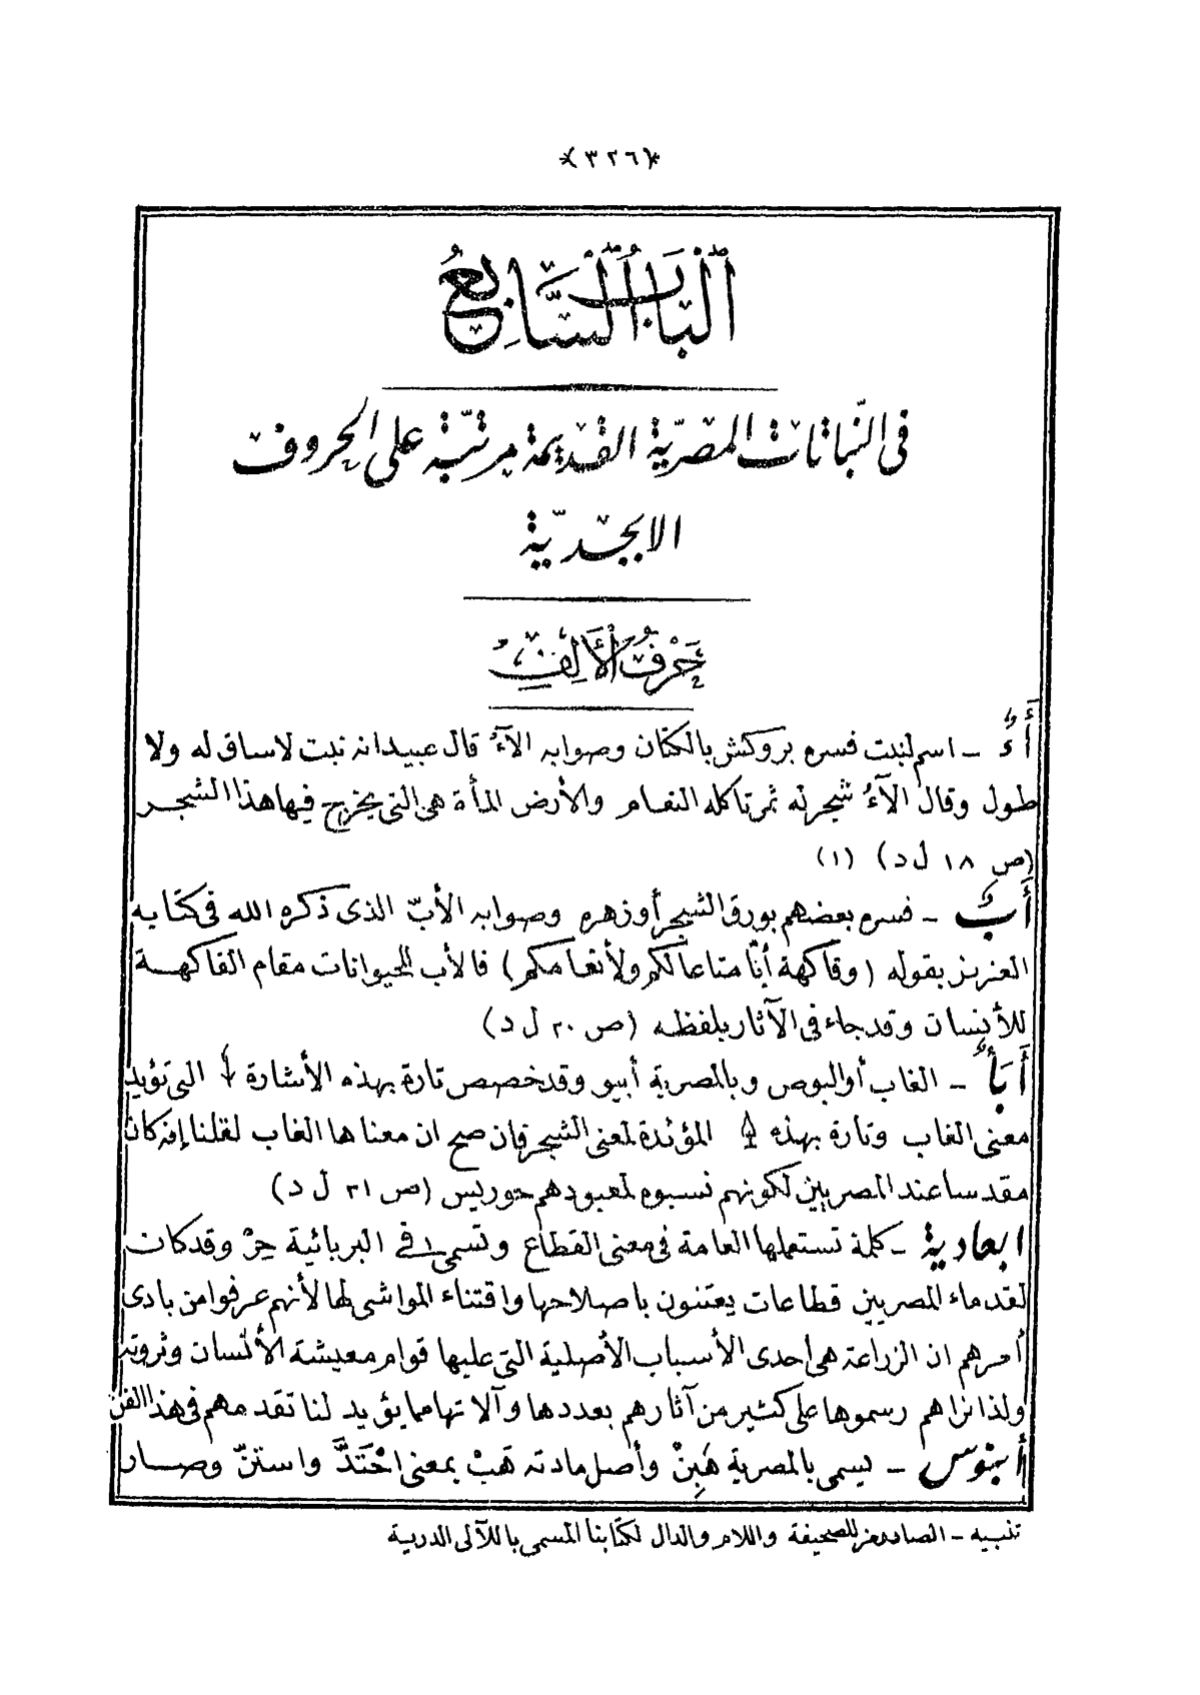 *(٣٢٦)*
اَلْبَابُ السَّابِعُ
فى النّباتات المصريّة القديمة مرتّبة على الحروف
الابجديّة
حَرْفُ الْأَلِفِ
أَءٌ – اسم لنبت فسره بروكش بالكتان وصوابه الآءُ قال عبيد انه نبت لاساق له ولا
طول وقال الآءُ شجر له ثمر تاكله النعام والأرض المأة هى التى يخرج فيها هذا الشجر
(ص ١٨ ل د) (١)
أَبٌ – فسره بعضهم بورق الشجر أو زهره وصوابه الأبّ الذى ذكره الله فى كتابه
العزيز بقوله (وفاكهة أبّا متاعا لكم ولأنعامكم) فالأب للحيوانات مقام الفاكهة
للأنسان وقد جاء فى الآثار بلفظه (ص ٢٠ ل د)
أَبَأٌ – الغاب أو البوص وبالمصرية أبيو وقد خصص تارة بهذه الأشارة التى تؤيد
معنى الغاب وتارة بهذه المؤيدة لمعنى الشجر فان صح ان معناها الغاب لقلنا إنه كان
مقدسا عند المصريين لكونهم نسبوه لمعبودهم حوريس (ص ٣١ ل د)
ابعادية – كلمة تستعملها العامة فى معنى القطاع وتسمى فى البربائية حِرْ وقد كان
لقدماء المصريين قطاعات يعتنون باصلاحها واقتناء المواشى لها لأنهم عرفوا من بادى
أمرهم ان الزراعة هى احدى الأسباب الأصلية التى عليها قوام معيشة الأنسان وثروته
ولذا نراهم رسموها على كثير من آثارهم بعددها وآلاتها مما يؤيد لنا تقدمهم فى هذا الفن
أبنوس – يسمى بالمصرية هَبِنْ وأصل مادته هَبْ بمعنى احْتَدَّ واستنّ وصار
تنبيه – الصاد رمز للصحيفة واللام والدال لكتابنا المسمى باللآلى الدرية